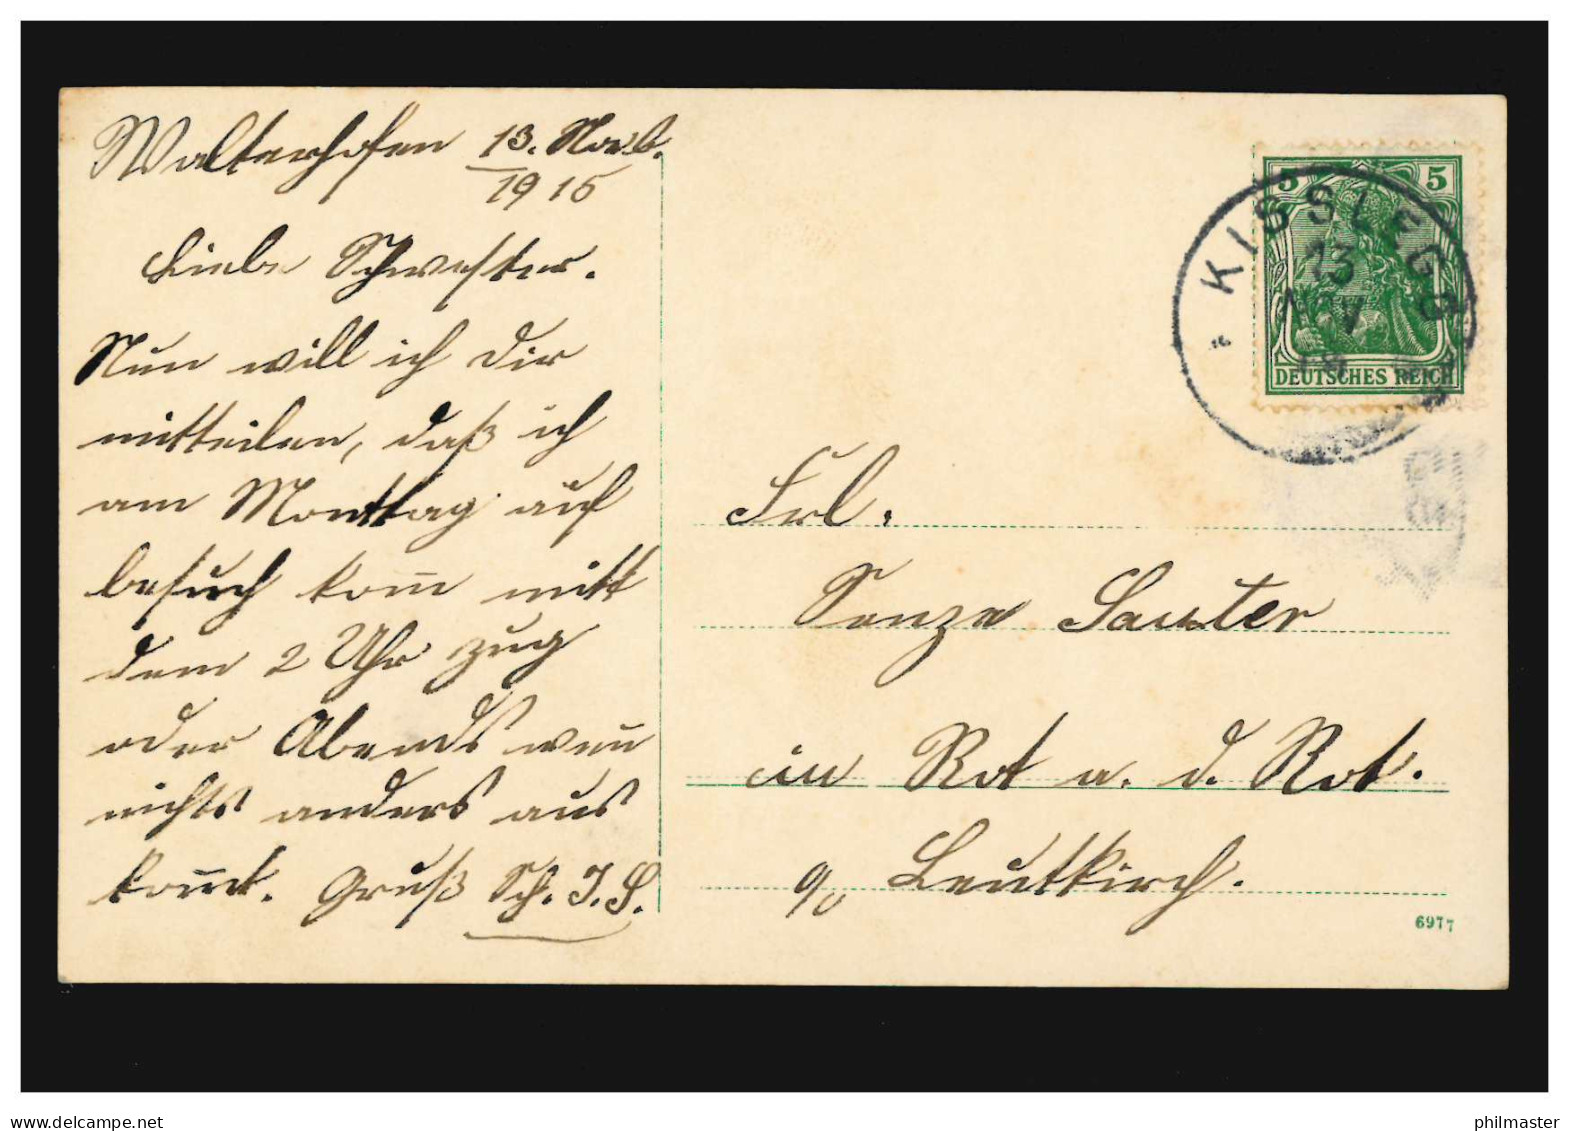 Walterhofen 13. Novb.
1915
Liebe Schwester.
Nun will ich dir
mitteilen, daß ich
am Monttag auf
besuch kom̄ mitt
dem 2 Uhr zug
oder Abends wen̄
nichts anders aus
kom̄t. Gruß Sch. J. S.
5 5
KISSLEGG
13
NOV
DEUTSCHES REICH
Frl.
Senze Sauter
in Rot a. d. Rot.
Leutkirch.
6977
delcampe.net
philmaster